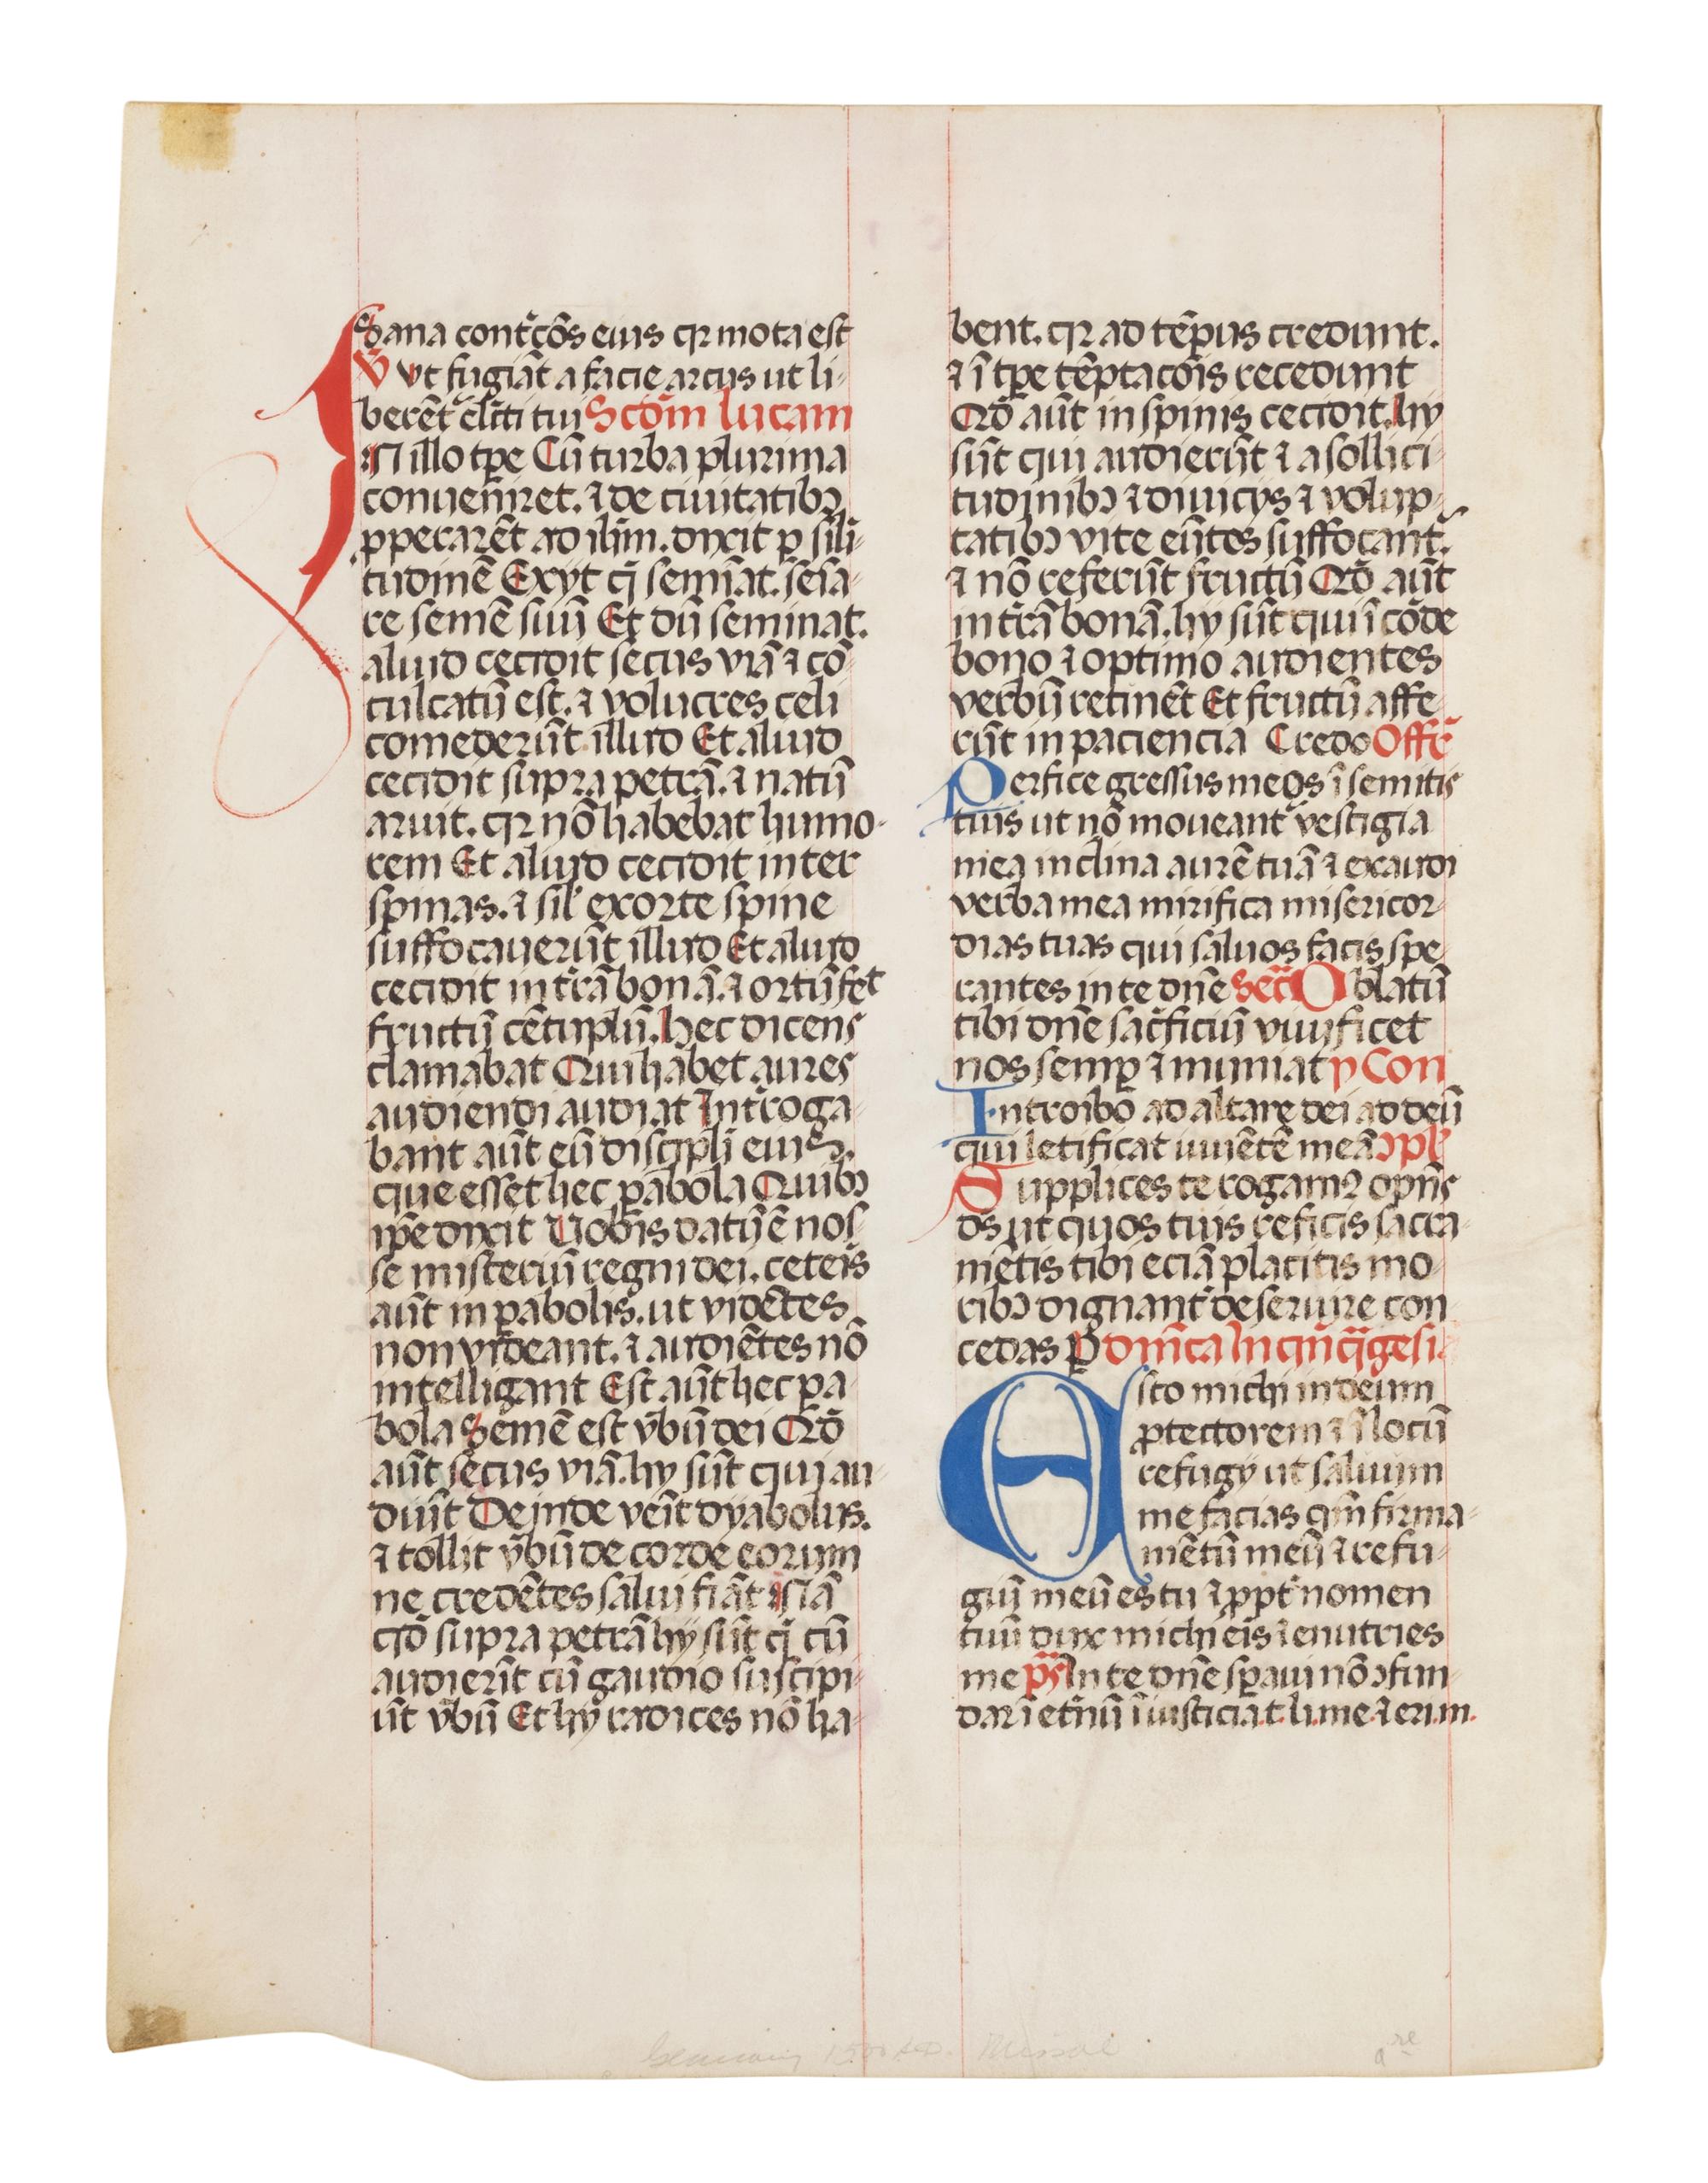 Sana cont͛c̄ōs eius qꝛ mota est
V̄ Vt fugiāt a facie arcus ut li-
berēt͛ el̄cti tui Scd̄m lucam
IN illo tp̄e Cū turba plurima
conuen̄iret. ⁊ de ciuitatibꝫ
ꝓperarēt ad ih̄m. dixit ꝑ sil̄i-
tudinē Exijt q̄ semīat. sēīa-
re semē suū Et dū seminat.
aliud cecidit secus viā ⁊ cō-
culcatū est. ⁊ volucres celi
comederūt illud Et aliud
cecidit supra petrā. ⁊ natū
aruit. qꝛ nō habebat humo-
rem Et aliud cecidit inter
spinas. ⁊ sil' exorte spine
suffocauerūt illud Et aliud
cecidit in tr̄ā bonā. ⁊ ortū fet
fructū cētuplū. hec dicens
clamabat Qui habet aures
audiendi audiat Int͛roga-
bant aūt eū discip̄li eius.
que esset hec ꝑabola Quibꝫ
ip̄e dixit Uob̄is datū ē nos-
se misteriū regni dei. cet͛eis
aūt in ꝑabolis. ut vidētes
non videant. ⁊ audiētes nō
intelligant Est aūt hec ꝑa-
bola Semē est v̄bū dei Qd̄
aūt secus viā. hij sūt qui au-
diūt Deinde veīt dyabolus.
⁊ tollit v̄bū de corde eorum
ne credētes salui fiāt
qd̄ supra petrā hij sūt q̄ cū
audierīt cū gaudio suscipi-
ūt v̄bū Et hij radices nō ha-
bent. qꝛ ad tēpus credunt.
⁊ ī tp̄e tēptacōis recedunt
Qd̄ aūt in spinis cecidit. hij
sūt qui audierūt ⁊ a sollici-
tudinibꝫ ⁊ diuicijs ⁊ volup-
tatibꝫ vite eūtes suffocant͛.
⁊ nō referūt fructū Qd̄ aūt
in tr̄ā bonā. hij sūt qui ī cor̄de
bono ⁊ optimo audientes
verbū retinēt Et fructū affe-
rūt in paciencia Credo Offr̄
Perfice gressus meos ī semitis
tuis ut nō moueant͛ vestigia
mea inclina aurē tuā ⁊ exaudi
verba mea mirifica misericor-
dias tuas qui saluos facis spe-
rantes in te dn̄e Secr̄ Oblatū
tibi dn̄e sac̄ficiū viuificet
nos semꝑ ⁊ muniat p Con
Introibo ad altare dei ad deū
qui letificat iuuētē meā ꝯpl̄
Supplices te rogamꝰ opn̄s
ds̄ ut quos tuis reficis sacra-
mētis tibi eciā placitis mo-
ribꝫ dignant͛ deseruire con-
cedas ꝑ dn̄ica In qn̄q̄gesi.
Esto michi in deum
ꝓtectorem ⁊ ī locū
refugij ut saluum
me facias qm̄ firma-
mētū meū ⁊ refu-
giū meū es tu ⁊ ꝓpt͛ nomen
tuū dux michi eis ⁊ enutries
me p̄s In te dn̄e sꝑaui nō ꝯfun-
dar ī et͛nū ī iusticia.t.li.me.⁊ eri.m.